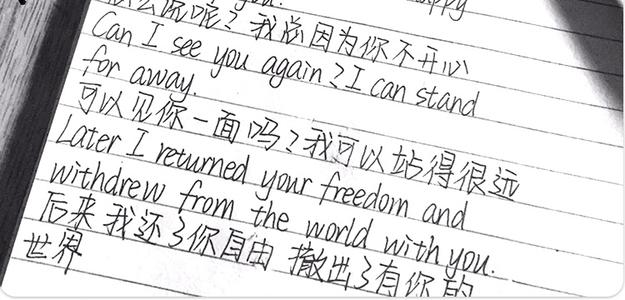 你呢？我总因为你不开心
Can I see you again? I can stand
for away.
可以见你一面吗？我可以站得很远
Later I returned your freedom and
withdrew from the world with you.
后来我还了你自由 撤出了有你的
世界